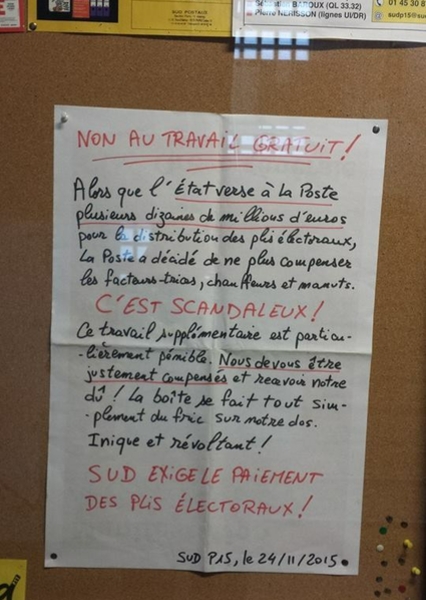 SUD POSTAUX
BAROUX (QL 33.32)
Pierre NERISSON (lignes UI/DR)
01 45 30 8
sudp15@sud
NON AU TRAVAIL GRATUIT !
Alors que l'État verse à La Poste
plusieurs dizaines de millions d'euros
pour la distribution des plis électoraux,
La Poste a décidé de ne plus compenser
les facteurs-trices, chauffeurs et manuts.
C'EST SCANDALEUX !
Ce travail supplémentaire est particu-
-lièrement pénible. Nous devons être
justement compensés et recevoir notre
dû ! La boîte se fait tout sim-
-plement du fric sur notre dos.
Inique et révoltant !
SUD EXIGE LE PAIEMENT
DES PLIS ÉLECTORAUX !
SUD P15, le 24/11/2015